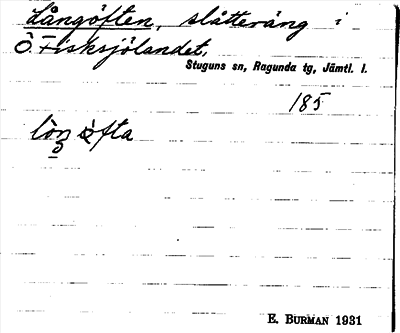 Långöften, slåtteräng i
Ö. Fisksjölandet,
Stuguns sn, Ragunda tg, Jämtl. l.
185
E. BURMAN 1931